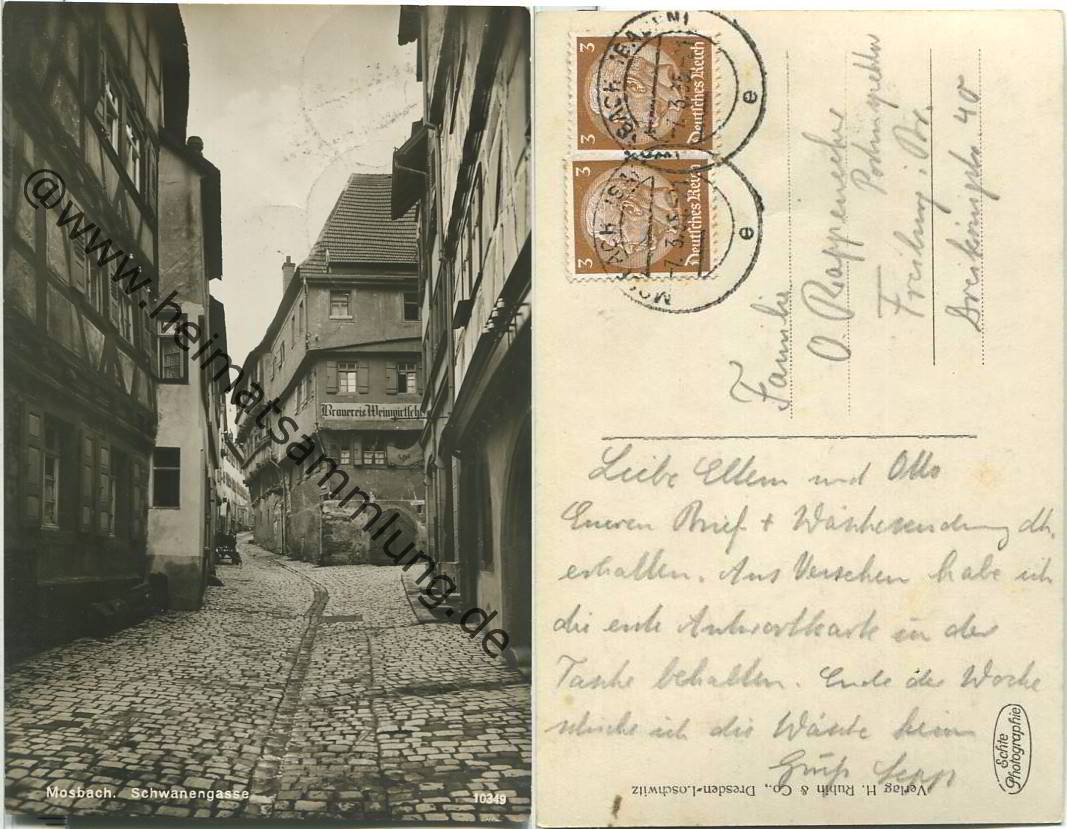 Brauerei & Weinwirtsch
@www.heimatsammlung.de
Mosbach. Schwanengasse
10349
3
Deutsches Reich
3
Deutsches Reich
e
e
Familie
O. Rappenecker
Freiburg i. Br.
Dreikönigstr. 40
Liebe Eltern und Otto
Eueren Brief + Wäschesendung dk.
erhalten. Aus Versehen habe ich
die erste Antwortkarte in der
Tasche behalten. Ende der Woche
schicke ich die Wäsche heim
Gruß Sepp
Echte
Photographie
Verlag H. Rubin & Co., Dresden-Loschwitz